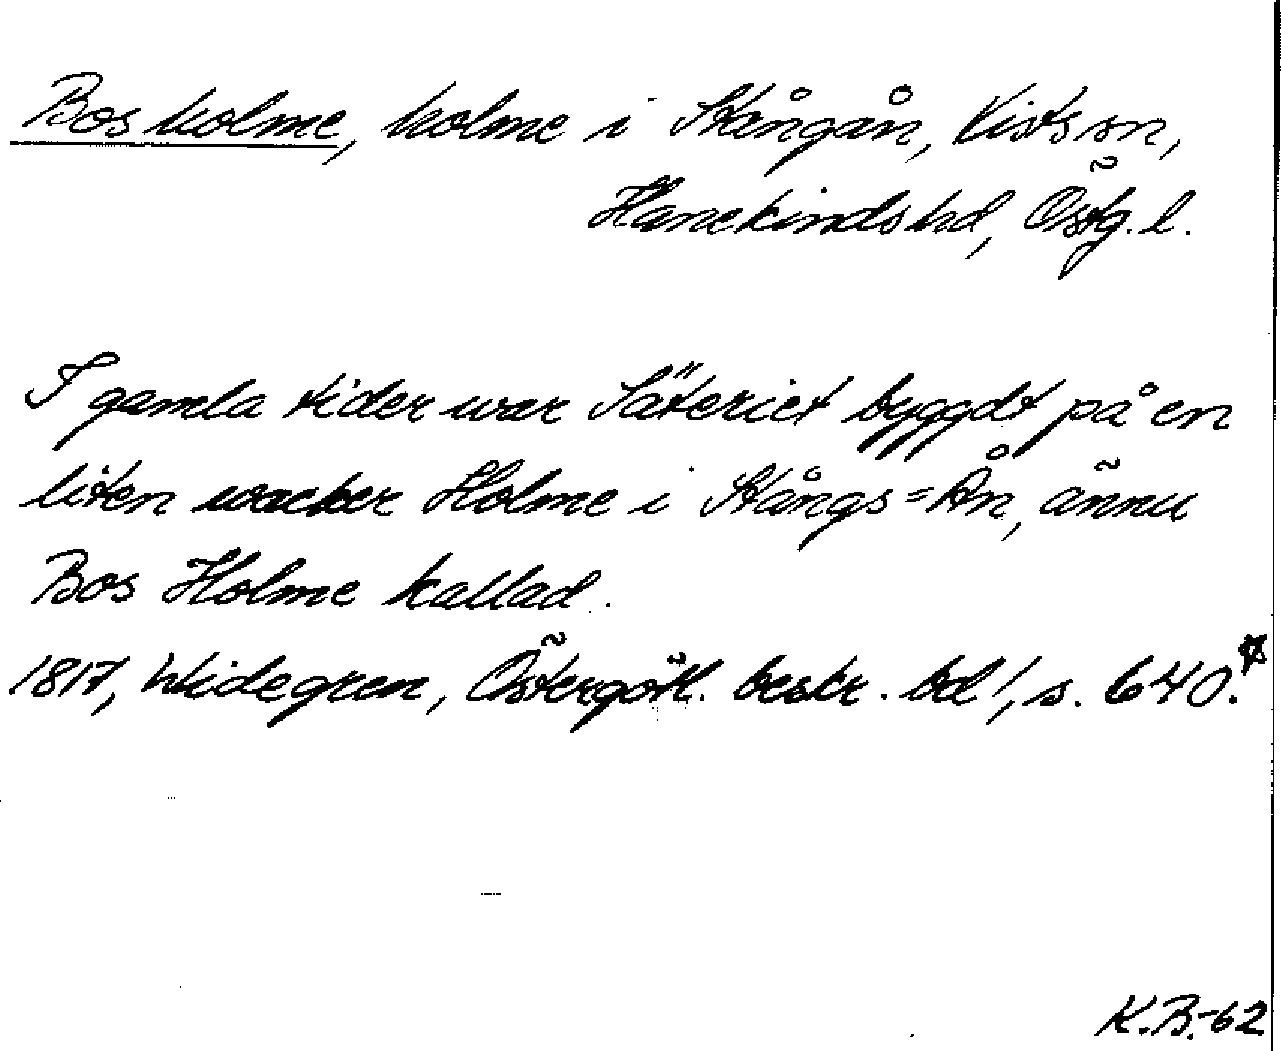 Bos holme, holme i Stångån, Vists sn,
Hanekinds hd, Östg. l.
I gamla tider war Säteriet byggdt på en
liten wacker Holme i Stångs=Ån, ännu
Bos Holme kallad.
1817, Widegren, Östergötl. beskr. bd 1, s. 640.
K.B.-62